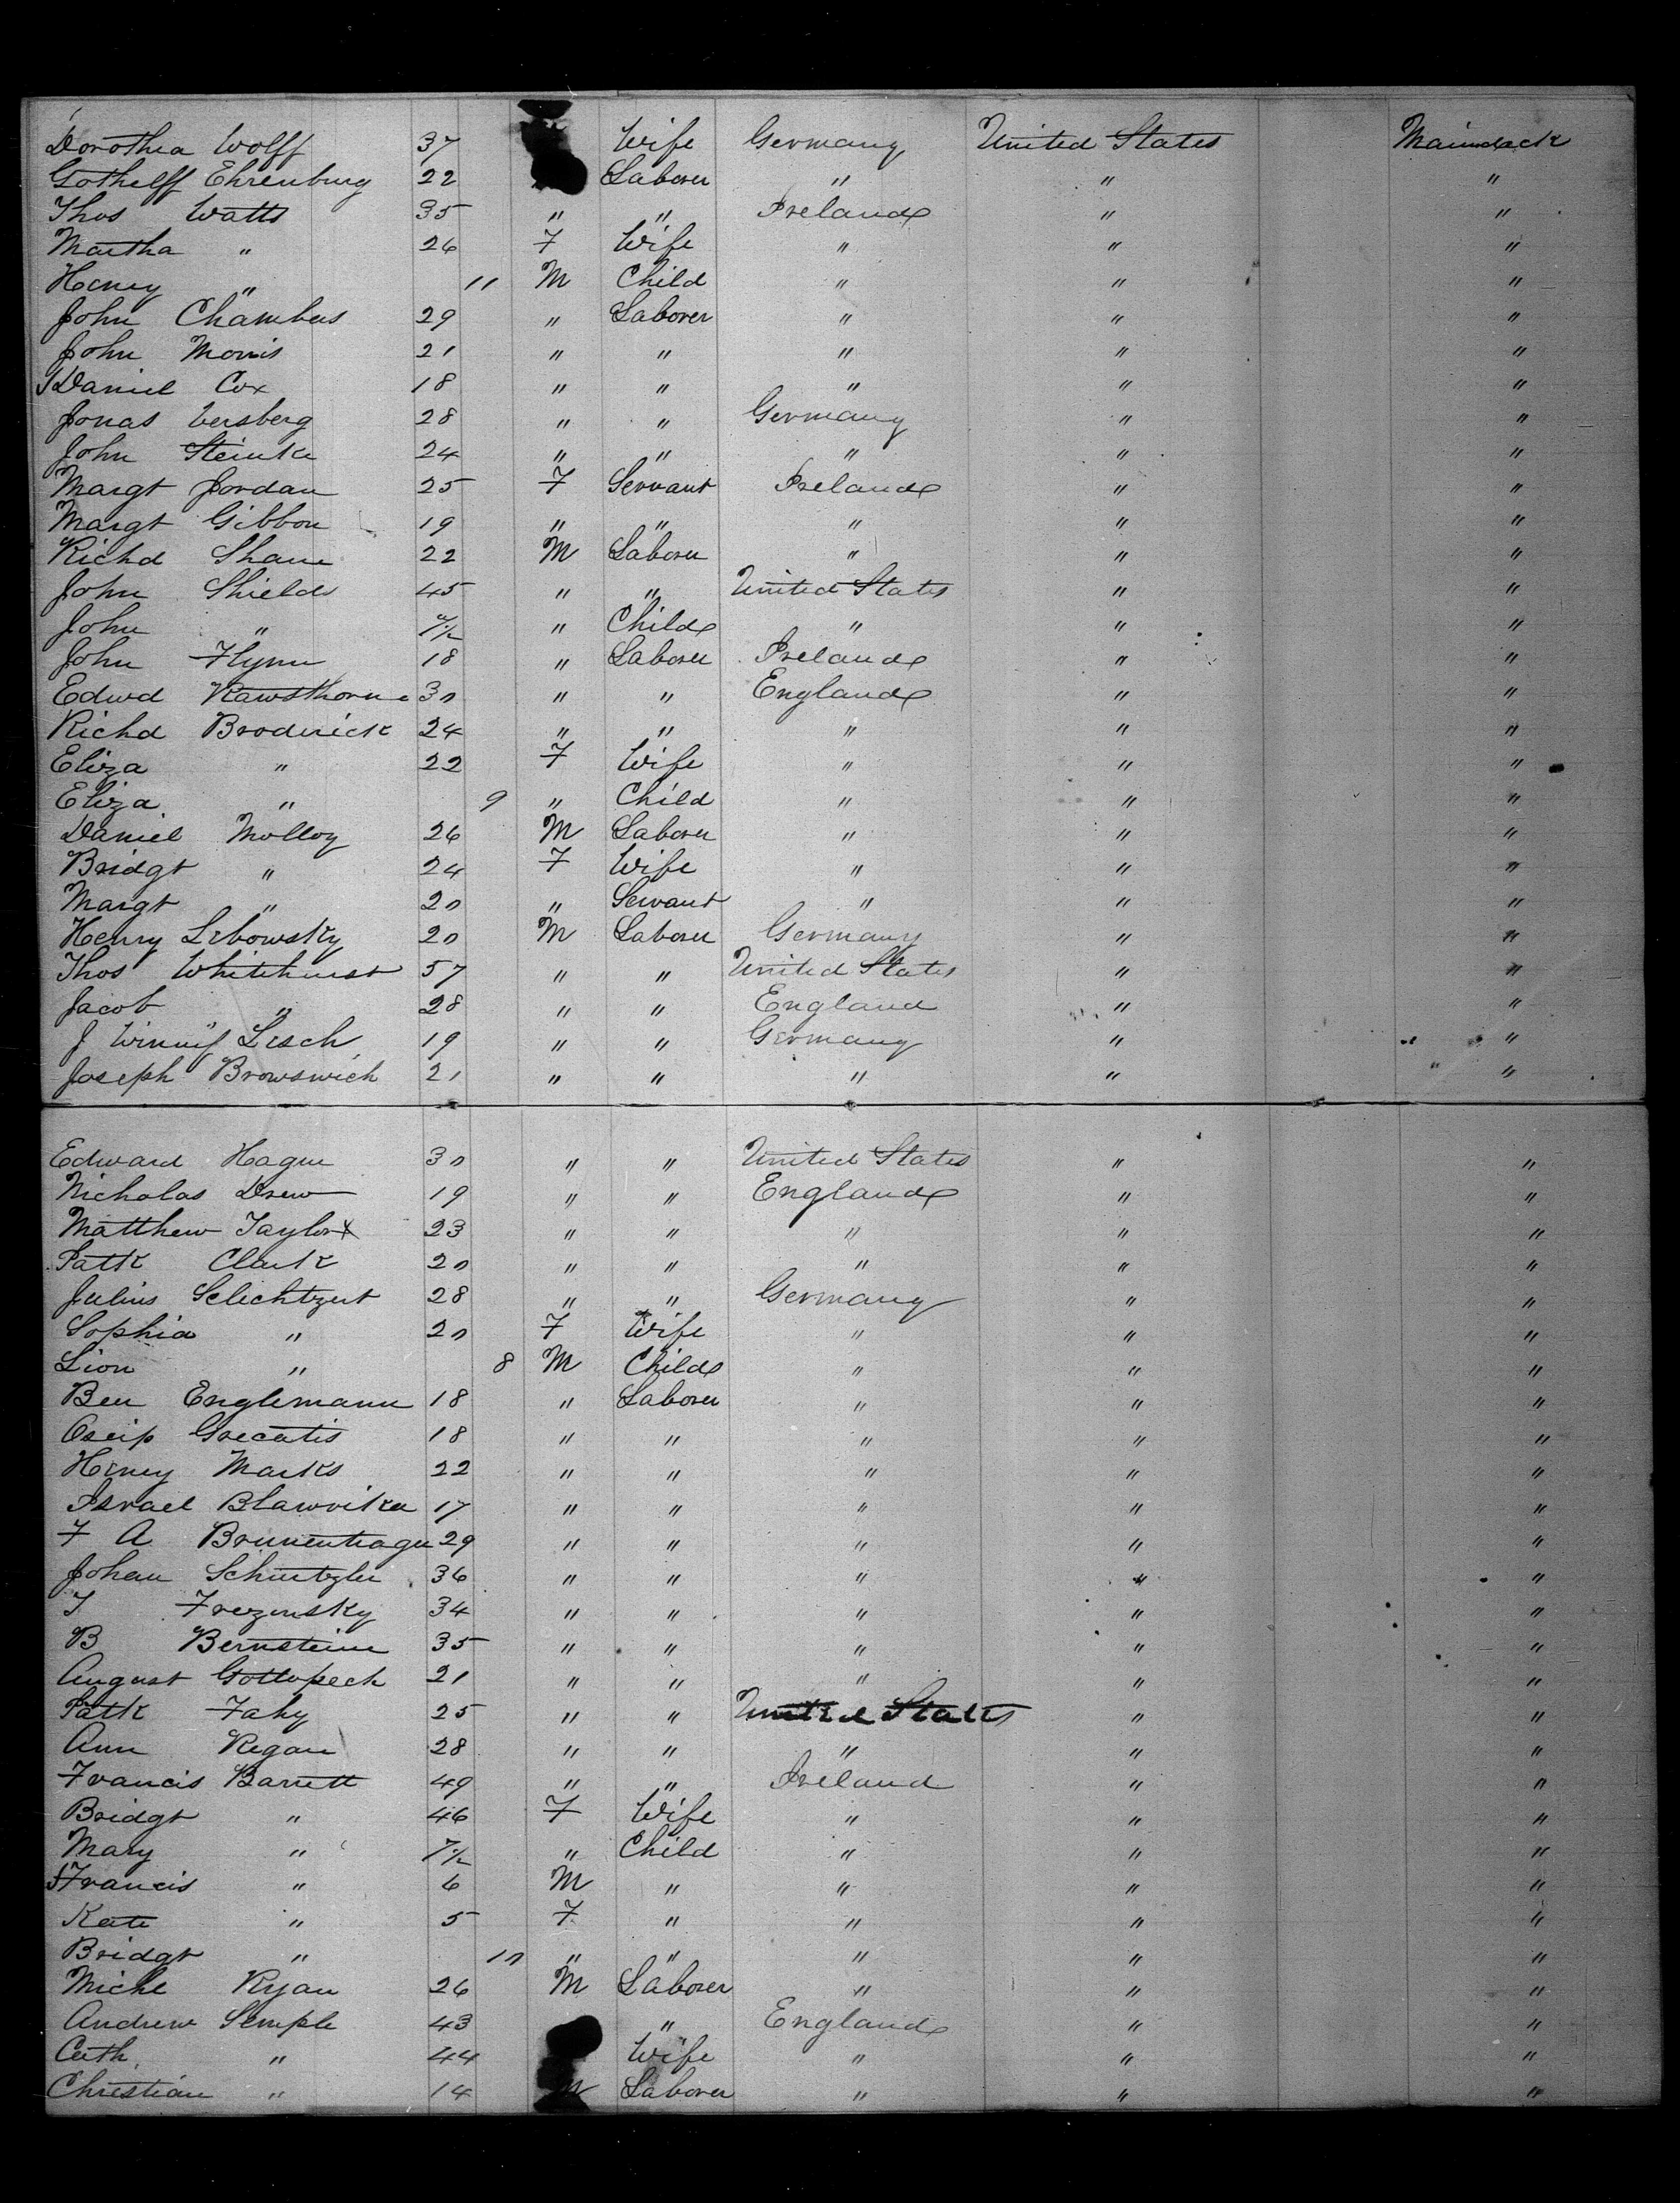 Dorothea Wolff 37 Wife Germany United States
Gothelff Ehrenburg 22 Laborer " " "
Thos Watts 35 " " Ireland " "
Martha " 26 F Wife " " "
Henry " 11 M Child " " "
John Chambers 29 " Laborer " " "
John Morris 21 " " " " "
Daniel Cox 18 " " " " "
Jonas 28 " " Germany " "
John Steinke 24 " " " " "
Margt Jordan 25 F Servant Ireland " "
Margt Gibbon 19 " " " " "
Richd Shane 22 M Laborer " " "
John Shields 45 " " United States " "
John " " Child " " "
John Flynn 18 " Laborer Ireland " "
Edwd Rawsthorne 30 " " England " "
Richd Broderick 24 " " " " "
Eliza " 22 F Wife " " "
Eliza " 9 " Child " " "
Daniel Molloy 26 M Laborer " " "
Bridgt " 24 F Wife " " "
Margt " 20 " Servant " " "
Henry Lebowsky 20 M Laborer Germany " "
Thos Whitehurst 57 " " United States " "
Jacob " 28 " " England " "
J Lesch 19 " " Germany " "
Joseph Browswich 21 " " " " "
Edward Hague 30 " " United States " "
Nicholas Drew 19 " " England " "
Matthew Taylor 23 " " " " "
Patk Clark 20 " " " " "
Julius 28 " " Germany " "
Sophia " 20 F Wife " " "
Lion " 8 M Child " " "
Ben Englemann 18 " Laborer " " "
Osip 18 " " " " "
Henry Marks 22 " " " " "
Israel 17 " " " " "
F A 29 " " " " "
Johan 36 " " " " "
34 " " " " "
B Bernstein 35 " " " " "
August Gottopech 21 " " " " "
Patk Fahy 25 " " United States " "
Ann Regan 28 " " " " "
Francis Barrett 49 " " Ireland " "
Bridgt " 46 F Wife " " "
Mary " " Child " " "
Francis " 6 M " " " "
Kate " 5 F " " " "
Bridgt " 10 " " " " "
Michl Ryan 26 M Laborer " " "
Andrew Semple 43 " England " "
Cath " 44 Wife " " "
Christian " 14 M Laborer " " "